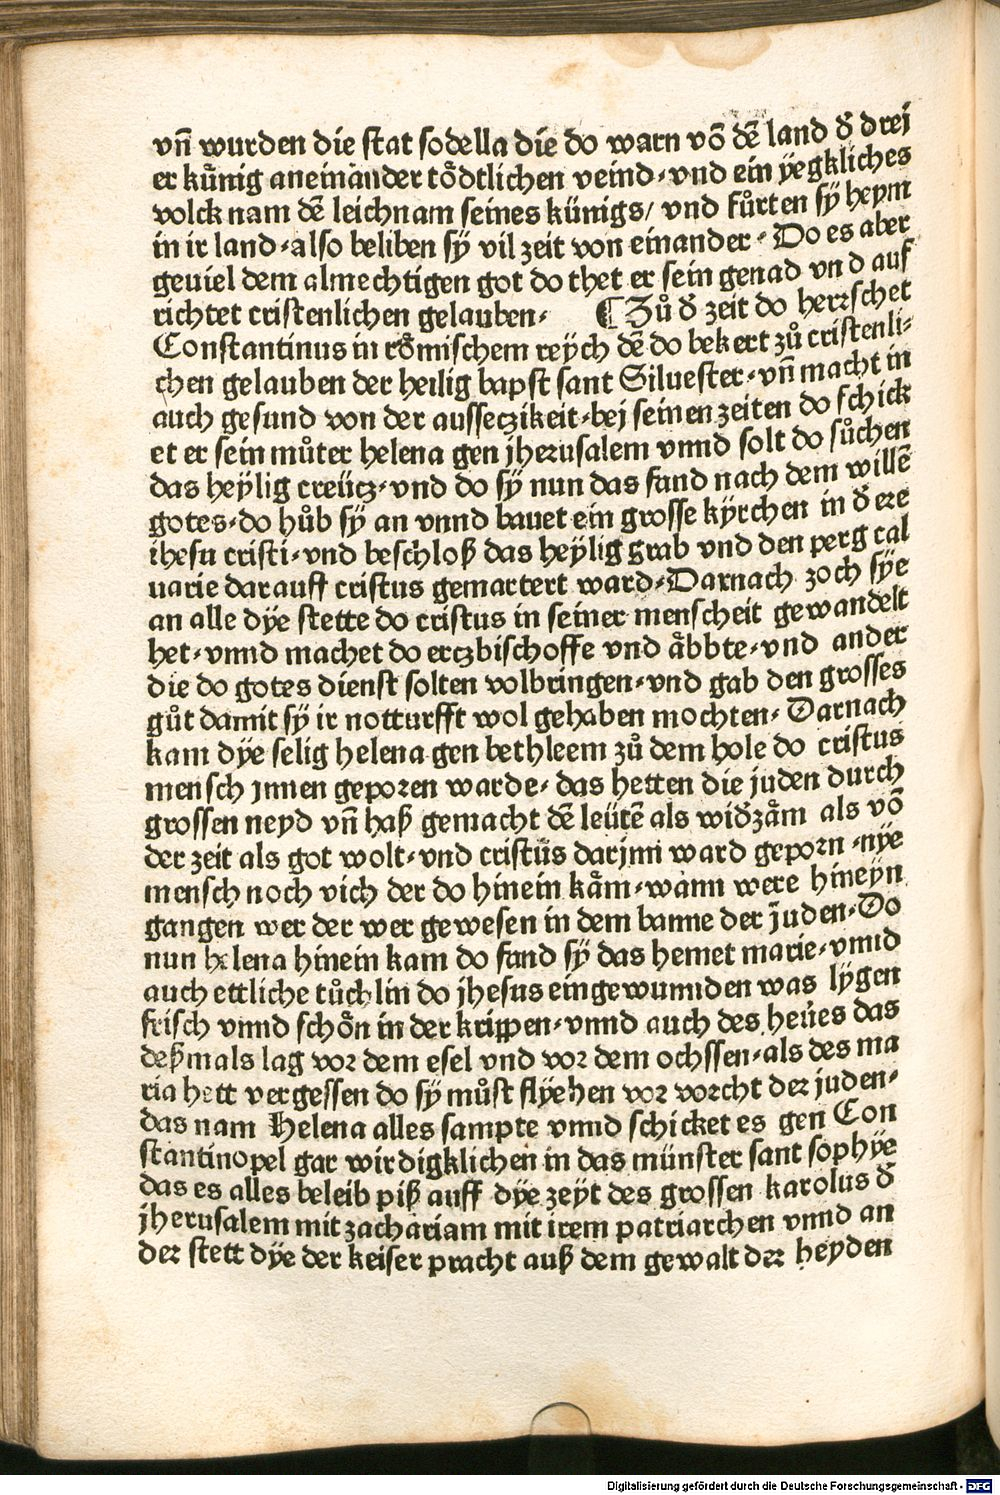 vñ wurden die stat sodella die do warn võ dẽ land ð drei
er kü̊nig aneinander tödtlichen veind·vnd ein yegkliches
volck nam dẽ leichnam seines künigs/ vnd fůrten sÿ heym
in ir land·also beliben sÿ vil zeit von einander· Do es aber
geuiel dem almechtigen got do thet er sein genad vnd auf
richtet cristenlichen gelauben· ¶ Zů ð zeit do herrschet
Constantinus in römischem reÿch dẽ do bekert zů cristenli⸗
chen gelauben der heilig bapst sant Siluester·vñ macht in
auch gesund von der ausseczikeit·bej seinen zeiten do schick
et er sein můter helena gen jherusalem vnnd solt do sůchen
das heÿlig creücz·vnd do sÿ nun das fand nach dem willẽ
gotes·do hůb sÿ an vnnd bauet ein grosse kÿrchen in ð ere
ihesu cristi·vnd beschloß das heÿlig grab vnd den perg cal
uarie darauff cristus gemartert ward·Darnach zoch sÿe
an alle dÿe stette do cristus in seiner menscheit gewandelt
het·vnnd machet do erczbischoffe vnd äbbte·vnd ander
die do gotes dienst solten volbringen·vnd gab den grosses
gůt damit sÿ ir notturfft wol gehaben mochten· Darnach
kam dÿe selig helena gen bethleem zů dem hole do cristus
mensch jnnen geporen warde· das hetten die juden durch
grossen neyd vñ haß gemacht dẽ leütẽ als wiðzäm als võ
der zeit als got wolt·vnd cristus darjnn ward geporn ·nÿe
mensch noch vich der do hinein käm·wann were hineÿn
gangen wer der wer gewesen in dem banne der juden·Do
nun helena hinein kam do fand sÿ das hemet marie·vnnd
auch ettliche tůchlin do jhesus eingewunnden was lÿgen
frisch vnnd schön in der krippen·vnnd auch des heües das
deßmals lag vor dem esel vnd vor dem ochssen·als des ma
ria hett vergessen do sÿ můst flÿehen vor vorcht der juden·
das nam Helena alles sampte vnnd schicket es gen Con
stantinopel gar wirdigklichen in das münster sant sophÿe
das es alles beleib piß auff dÿe zeÿt des grossen karolus ð
jherusalem mit zachariam mit irem patriarchen vnnd an
der stett dÿe der keiser pracht auß dem gewalt der heyden
Digitalisierung gefördert durch die Deutsche Forschungsgemeinschaft - DFG